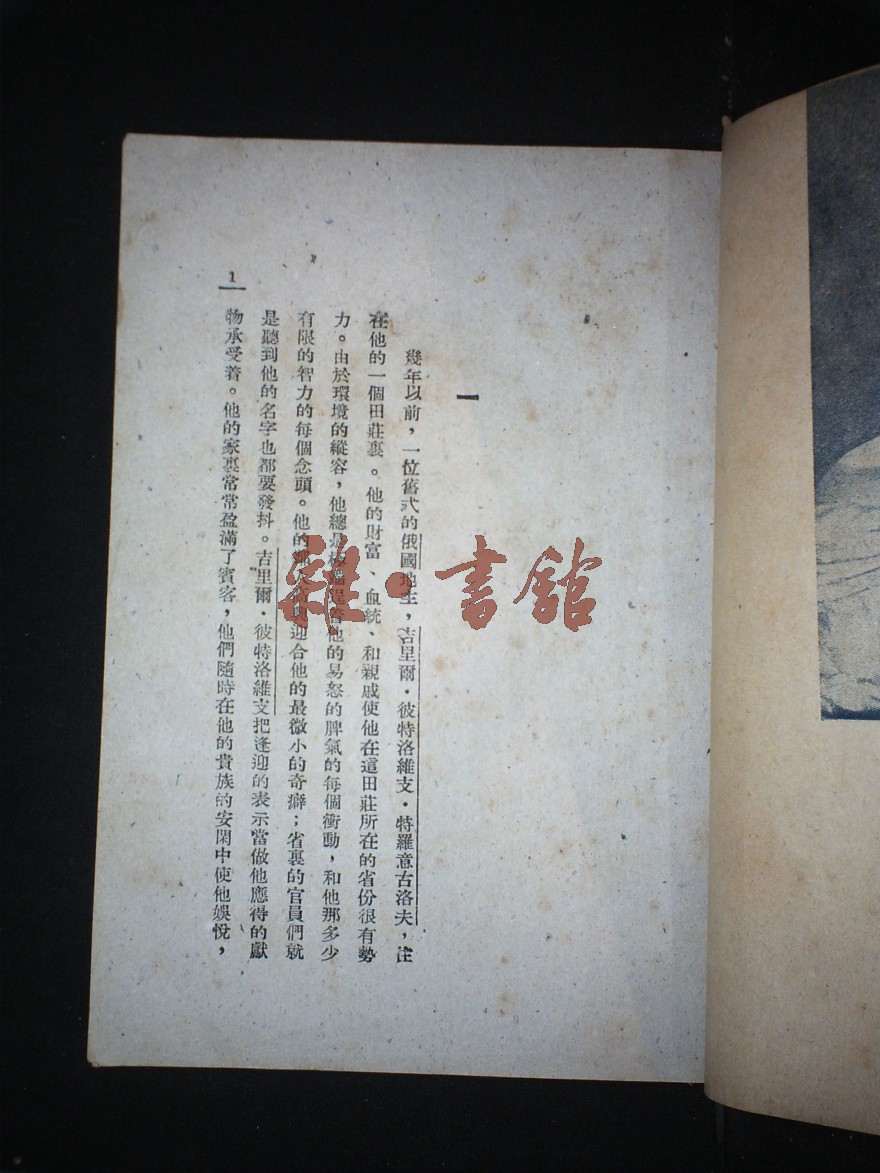 一
幾年以前，一位舊式的俄國地主，吉里爾·彼特洛維支·特羅意古洛夫，住
在他的一個田莊裏。他的財富、血統、和親戚使他在這田莊所在的省份很有勢
力。由於環境的縱容，他總是他的易怒的脾氣的每個衝動，和他那多少
有限的智力的每個念頭。他的迎合他的最微小的奇癖；省裏的官員們就
是聽到他的名字也都要發抖。吉里爾·彼特洛維支把逢迎的表示當做他應得的獻
物承受着。他的家裏常常盈滿了賓客，他們隨時在他的貴族的安閑中使他娛悅，
1
雜·書館